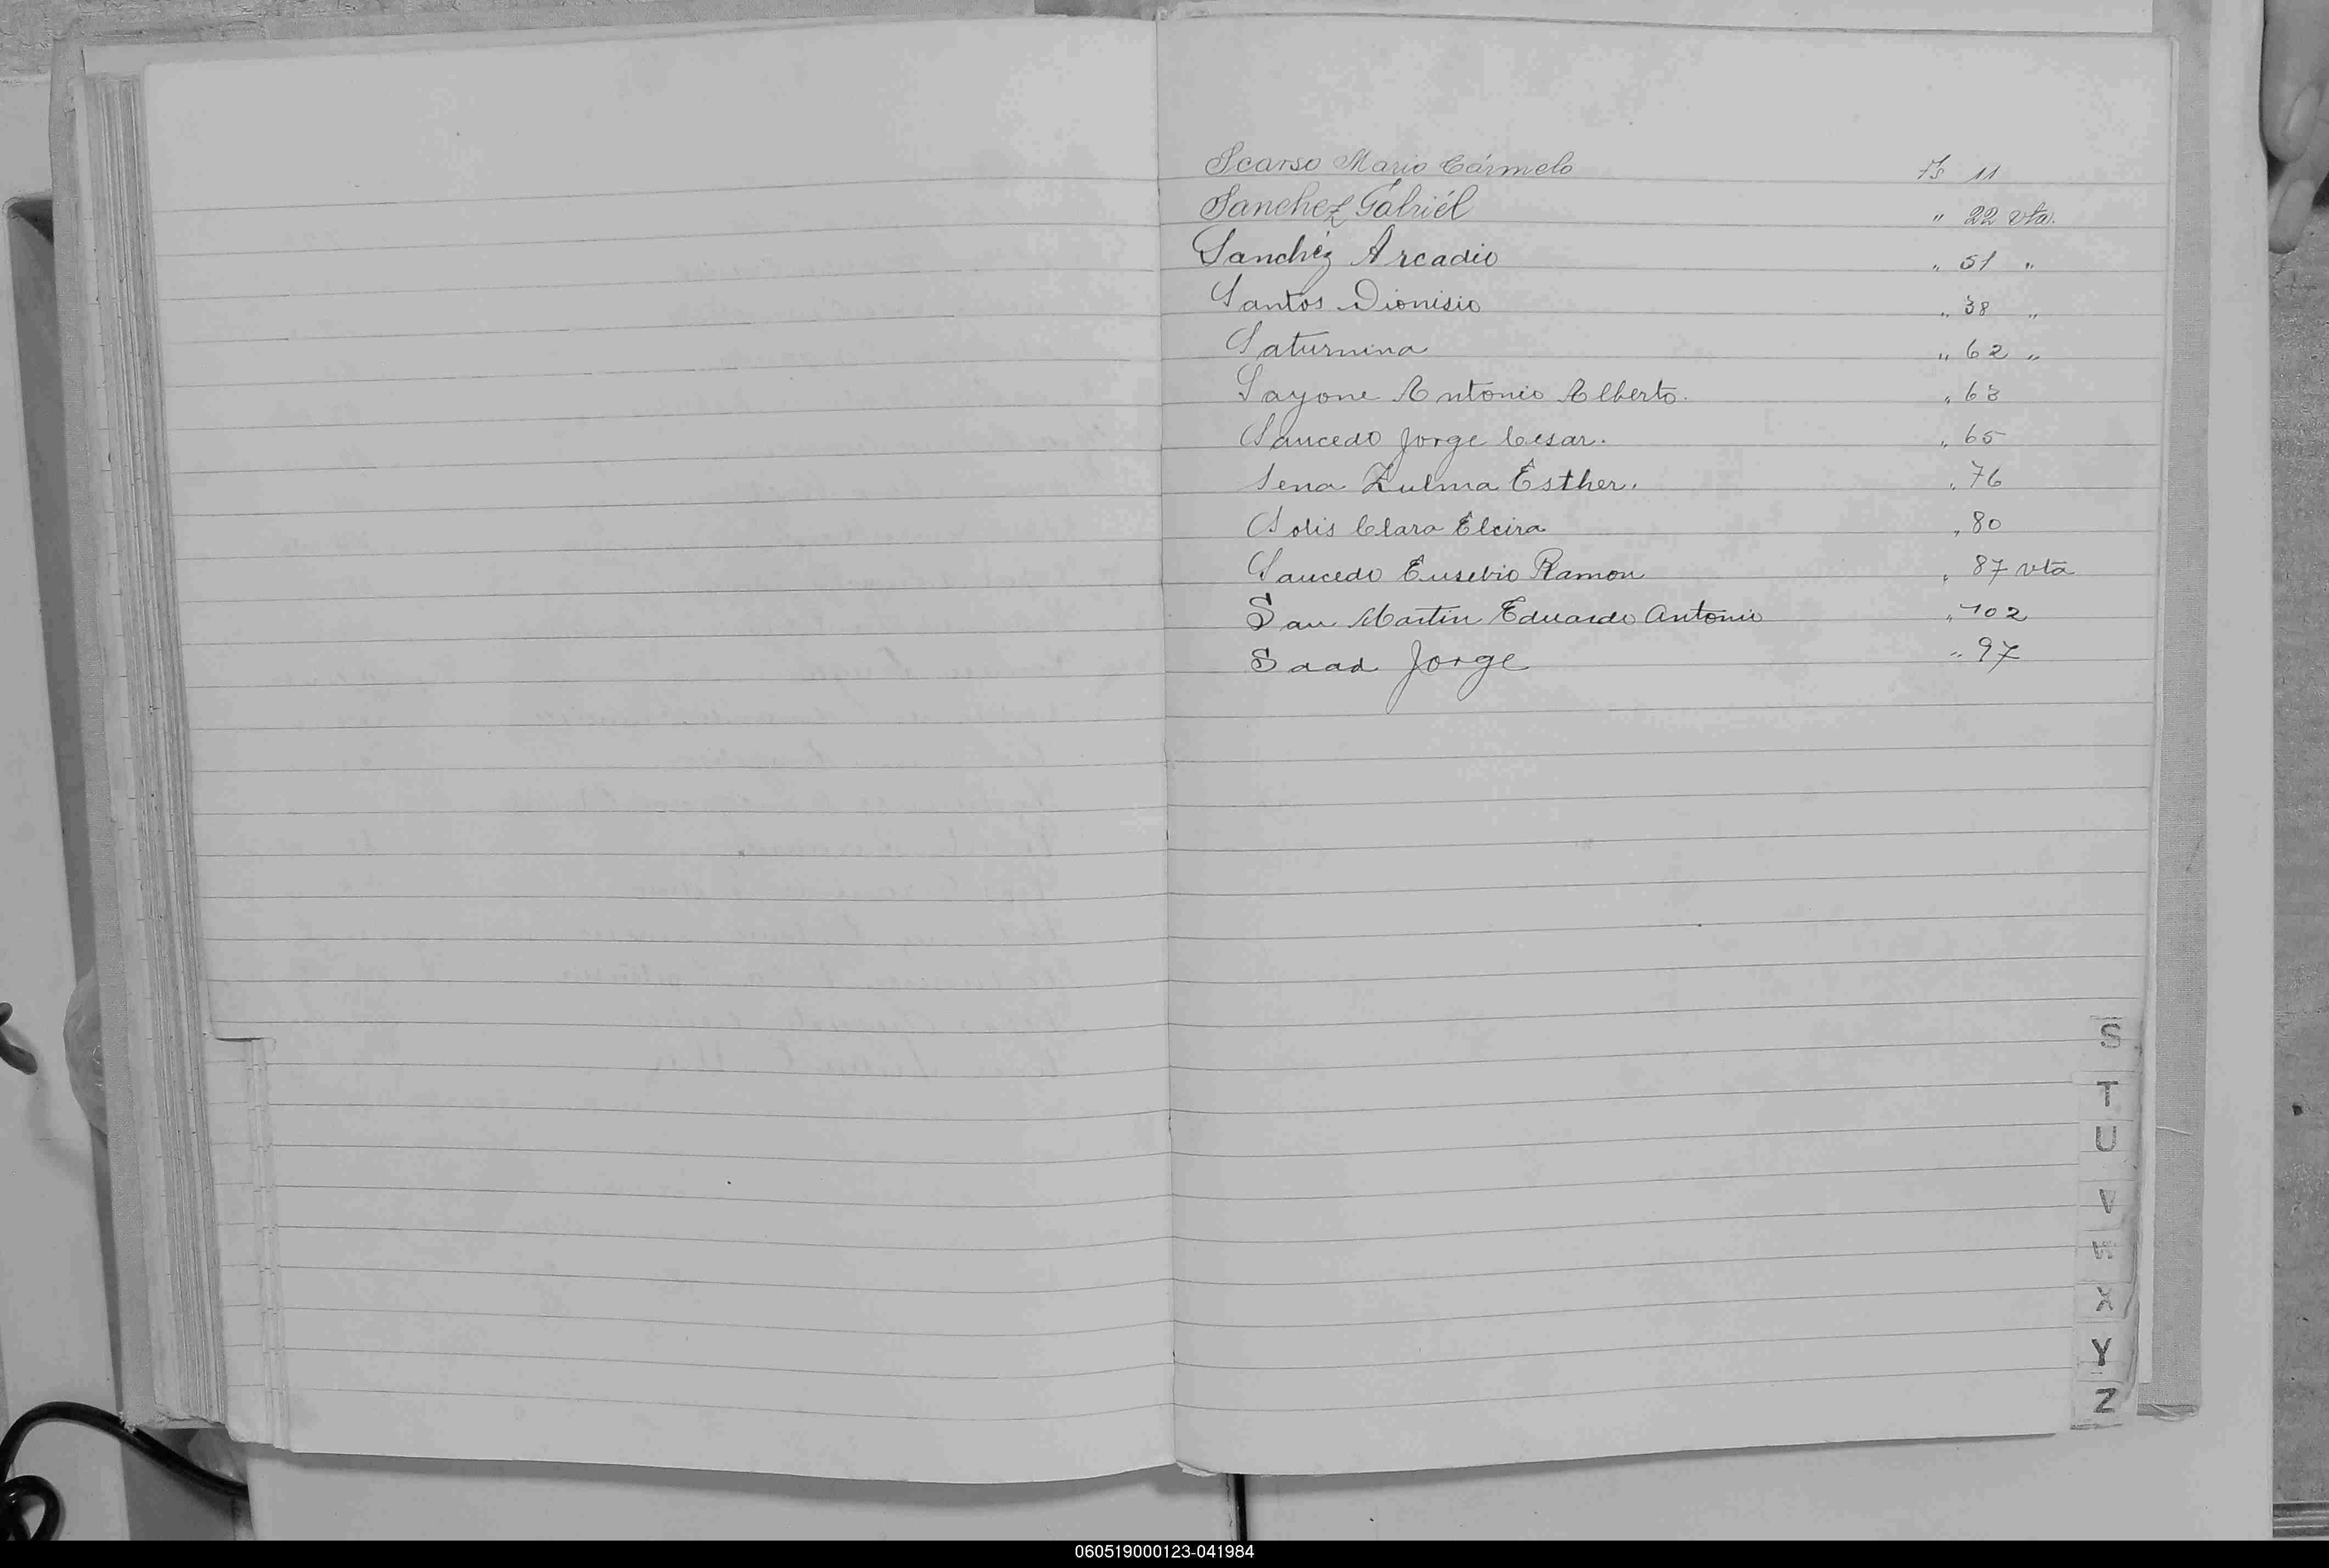 Scarso Mario Cármelo Fs 11
Sanchez Gabriél " 22 vta.
Sanchéz Arcadio " 51 "
Santos Dionisio " 38 "
Saturnina " 62 "
Sayone Antonio Alberto. " 63
Saucedo Jorge Cesar. " 65
Sena Zulma Esther. " 76
Solis Clara Elcira " 80
Saucedo Eusebio Ramon " 87 vta
San Martin Eduardo Antonio " 102
Saad Jorge " 97
S
T
U
V
W
X
Y
Z
060519000123-041984